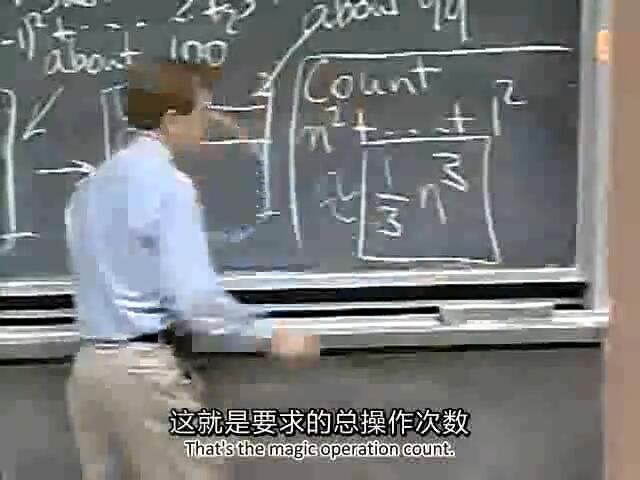 about 99
about 100
Count
n² + ... + 1²
≈ 1/3 n³
这就是要求的总操作次数
That's the magic operation count.